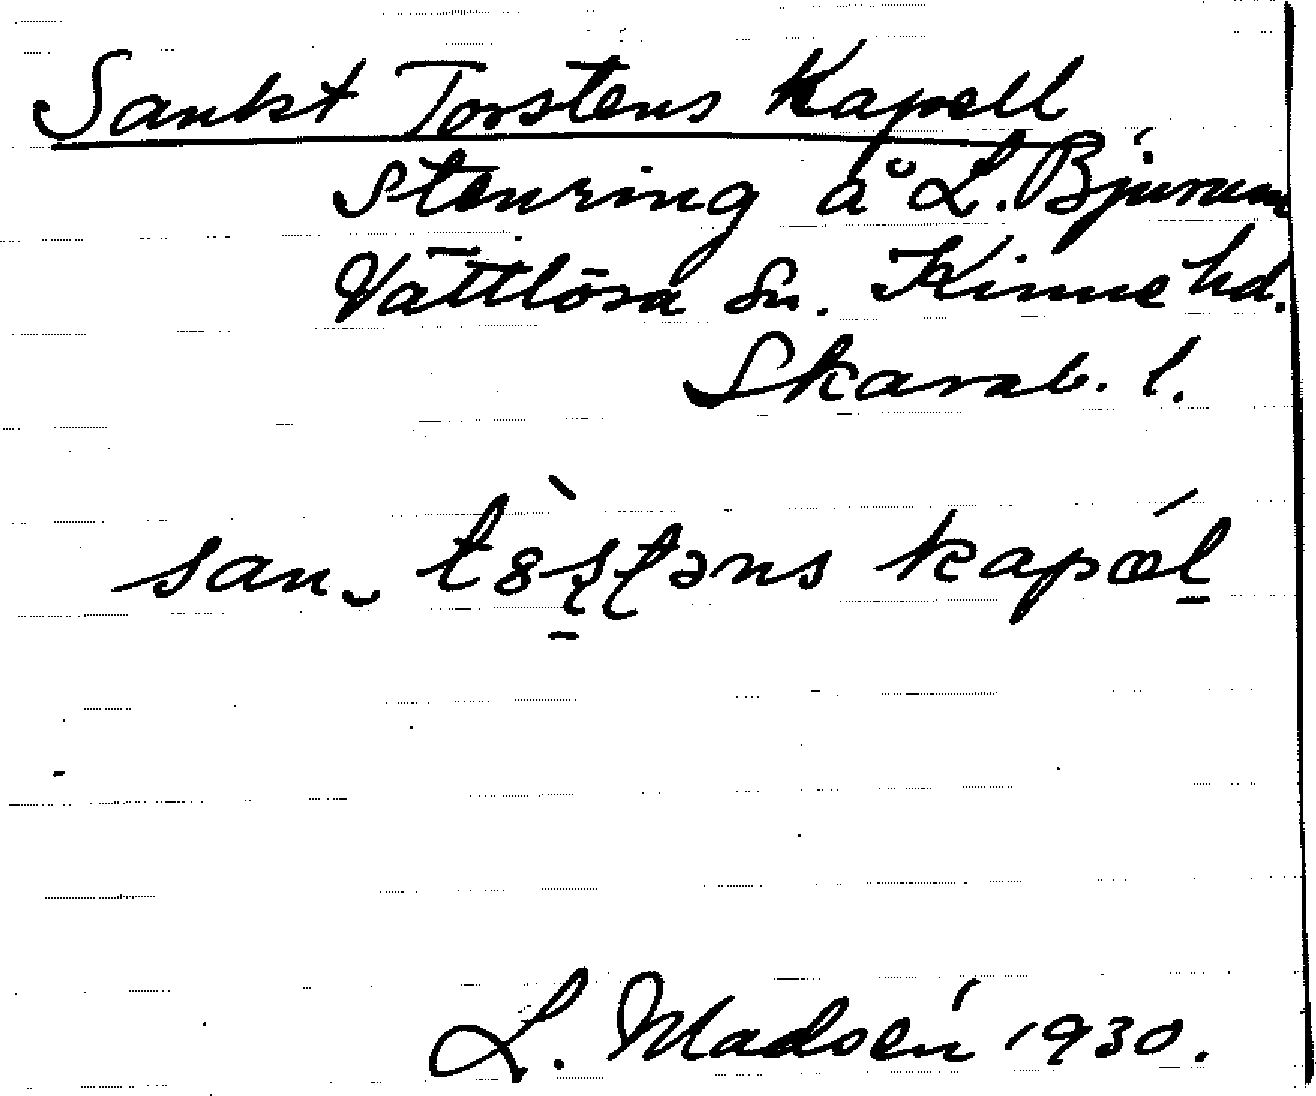 Sankt Torstens Kapell
Stenring å L. Bjurum
Vättlösa Sn. Kinne hd.
Skarab. l.
san tȣ̀ʂʈəns kapǽl
L. Madsén 1930.